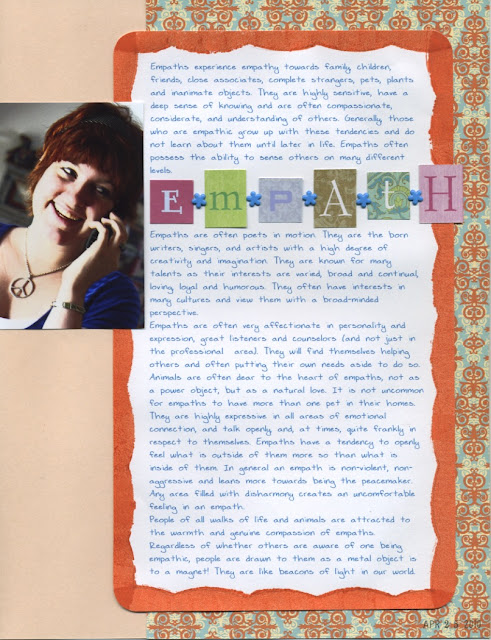 Empaths experience empathy towards family children,
friends, close associates, complete strangers, pets, plants
and inanimate objects. They are highly sensitive, have a
deep sense of knowing and are often compassionate,
considerate, and understanding of others. Generally those
who are empathic grow up with these tendencies and do
not learn about them until later in life. Empaths often
possess the ability to sense others on many different
levels.
EmPAtH
Empaths are often poets in motion. They are the born
writers, singers, and artists with a high degree of
creativity and imagination. They are known for many
talents as their interests are varied, broad and continual,
loving, loyal and humorous. They often have interests in
many cultures and view them with a broad-minded
perspective.
Empaths are often very affectionate in personality and
expression, great listeners and counselors (and not just in
the professional area). They will find themselves helping
others and often putting their own needs aside to do so.
Animals are often dear to the heart of empaths, not as
a power object, but as a natural love. It is not uncommon
for empaths to have more than one pet in their homes.
They are highly expressive in all areas of emotional
connection, and talk openly and, at times, quite frankly in
respect to themselves. Empaths have a tendency to openly
feel what is outside of them more so than what is
inside of them. In general an empath is non-violent, non-
aggressive and leans more towards being the peacemaker.
Any area filled with disharmony creates an uncomfortable
feeling in an empath.
People of all walks of life and animals are attracted to
the warmth and genuine compassion of empaths.
Regardless of whether others are aware of one being
empathic, people are drawn to them as a metal object is
to a magnet! They are like beacons of light in our world.